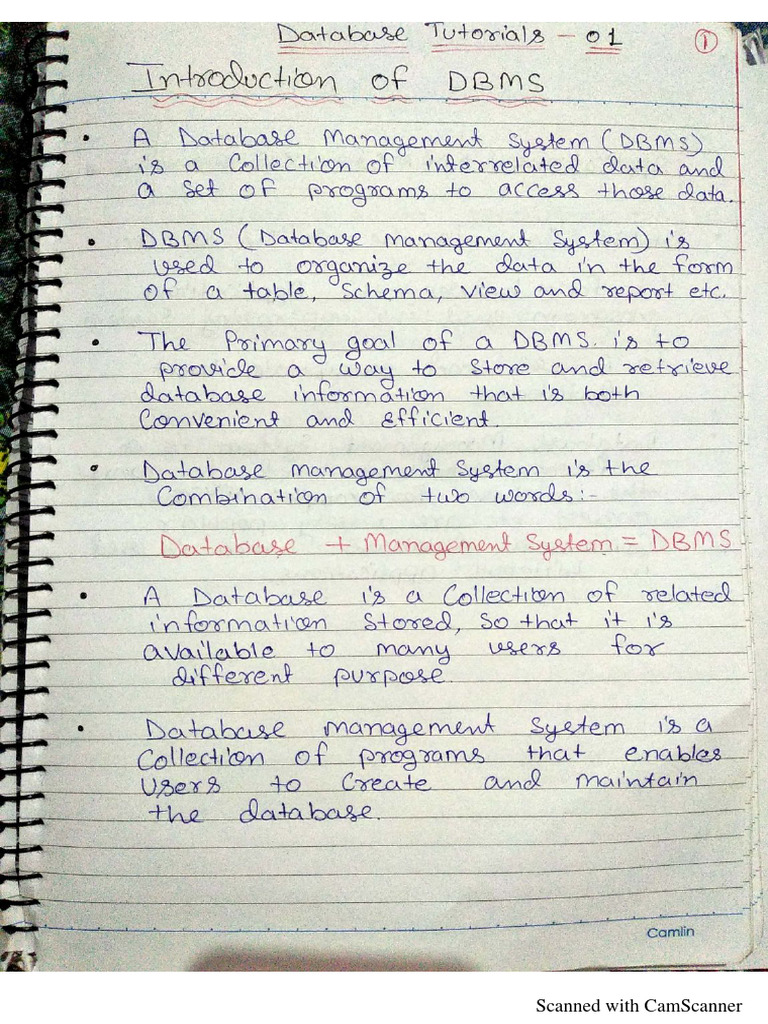 Database Tutorials - 01
①
Introduction of DBMS
• A Database Management System (DBMS)
is a Collection of interrelated data and
a set of programs to access those data.
• DBMS (Database management System) is
used to organize the data in the form
of a table, Schema, view and report etc.
• The Primary goal of a DBMS. is to
provide a way to Store and retrieve
database information that is both
Convenient and Efficient.
• Database management System is the
Combination of two words:-
Database + Management System = DBMS
• A Database is a Collection of related
information Stored, So that it is
available to many users for
different purpose.
• Database management System is a
Collection of programs that enables
Users to Create and maintain
the database.
Camlin
Scanned with CamScanner